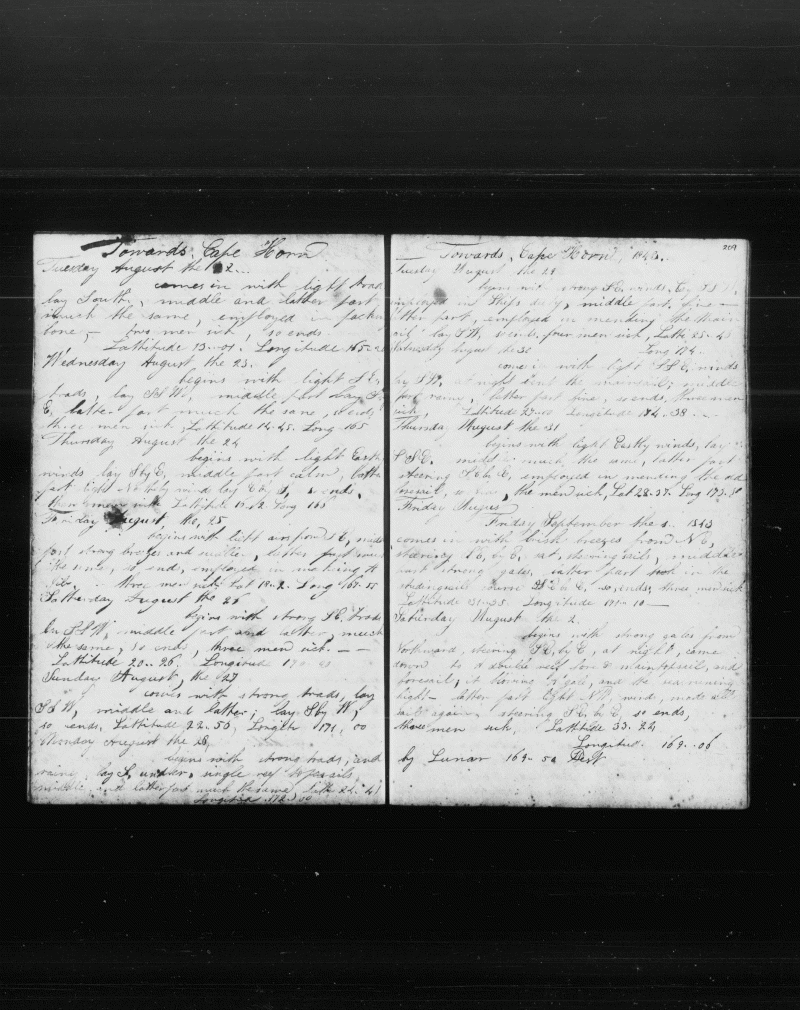 Towards, Cape Horn
Tuesday August the 22...
comes in with light trads
lay South, middle and latter part,
much the same, employed in
bone, two men sick, so ends
Lattitude 13-01. Longitude 165-
Wednesday August the 23.
begins with light S E,
trads, lay S S W, middle part lay S
E, latter part much the same, so ends
three men sick, Lattitude 14-45. Long 165
Thursday August the 24
begins with light Easty
winds lay S by E, middle part calm, latter
part light wind lay E by S, so ends,
three men sick Lattitude Long 165
August, the, 25
begins with light airs from S E, midd
part strong breezes and latter part much
the same, so end, employed in making
three men sick Lat 18-2. Long 167-55
Satturday August the 26
begins with strong S E, trads
by S S W, middle part and latter, much
the same, so ends, three men sick. - -
Lattitude 20-26. Longitude
Sunday August, the, 27
comes with strong trads, lay
S S W, middle and latter; lay S by W,
so ends. Lattitude 22.53, Longitu 171, 00
Monday August the 28,
begins with strong trads, and
rains, lay S, under, single reef topsails,
middle, and latter part much the same, latt 24. 41
Longitud 172-00
209
Towards, Cape Horn, 1843.
Tuesday August the 29
begins with strong S E, winds, by S S W
employed in ships duty, middle part, fine -
latter part, employed in mending the main
sail lay S W, so ends. four men sick, Latt 25-45
Wednesday August the 30 Long 174.
come in with light S S E, winds
by S W, at night bent the mainsail; middle
part rainy, latter part fine, so ends, three men
sick, Lattitude 27-00 Longitude 174-38.
Thursday August the 31
begins with light Eastly winds, lay
S S E. middle much the same, latter part
steering S E by E, employed in mending the old
foresail, so ends, three men sick, Lat 28-37. Long 173-
Finday Augus
Finday September the 1. 1843
comes in with brisk breezes from N E,
steering S E, by E, set, steering sails, middle
part strong gales, latter part took in the
studingsails steering S E by E, so ends, three men sick
Lattitude 31-35. Longitude 171-10
Saturday August the 2.
begins with strong gales from
Northward, steering S E, by E, at night, came
down to a double reef fore & maintopsail, and
foresail, it blowing a gale, and the sea running
hight - latter part light N E wind, made all
sail again steering S E, by E, so ends,
three men sick, Lattitude 33.24
Longitud. 169.-06
by Lunar 169-50 West